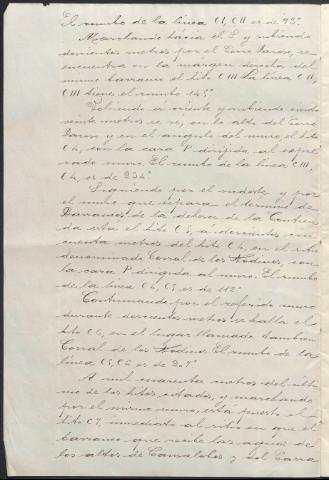 El rumbo de la línea CI, CII es de 93°
Marchando hácia el S. y subiendo
doscientos metros por el Cerro Pardo, se
encuentra en la margen derecha del
mismo barranco el hito CIII. La línea CII,
CIII tiene el rumbo 145°
Volviendo a oriente y subiendo ciento
veinte metros se vé, en lo alto del Cerro
y en el angulo del muro, el hito
C4, con la cara P dirigida al expre-
sado muro. El rumbo de la línea CIII,
C4, es de 234°
Siguiendo por el nordeste y por
el muro que separa el termino de
Barrancos de la dehesa de la Contien-
da está el hito C5, a doscientos cin-
cuenta metros del hito C4, en el sitio
denominado Corral de los con
la cara P dirigida al muro. El rumbo
de la línea C4, C5 es de 112°
Continuando por el referido muro
durante doscientos metros se halla el
hito C6, en el lugar llamado tambien
Corral de los El rumbo de la
línea C5, C6 es de
A mil cuarenta metros del últi-
mo de los hitos citados, y marchando
por el mismo muro, está puesto el
hito C7, inmediato al sitio en que el
barranco que recibe las aguas de
los altos de y del